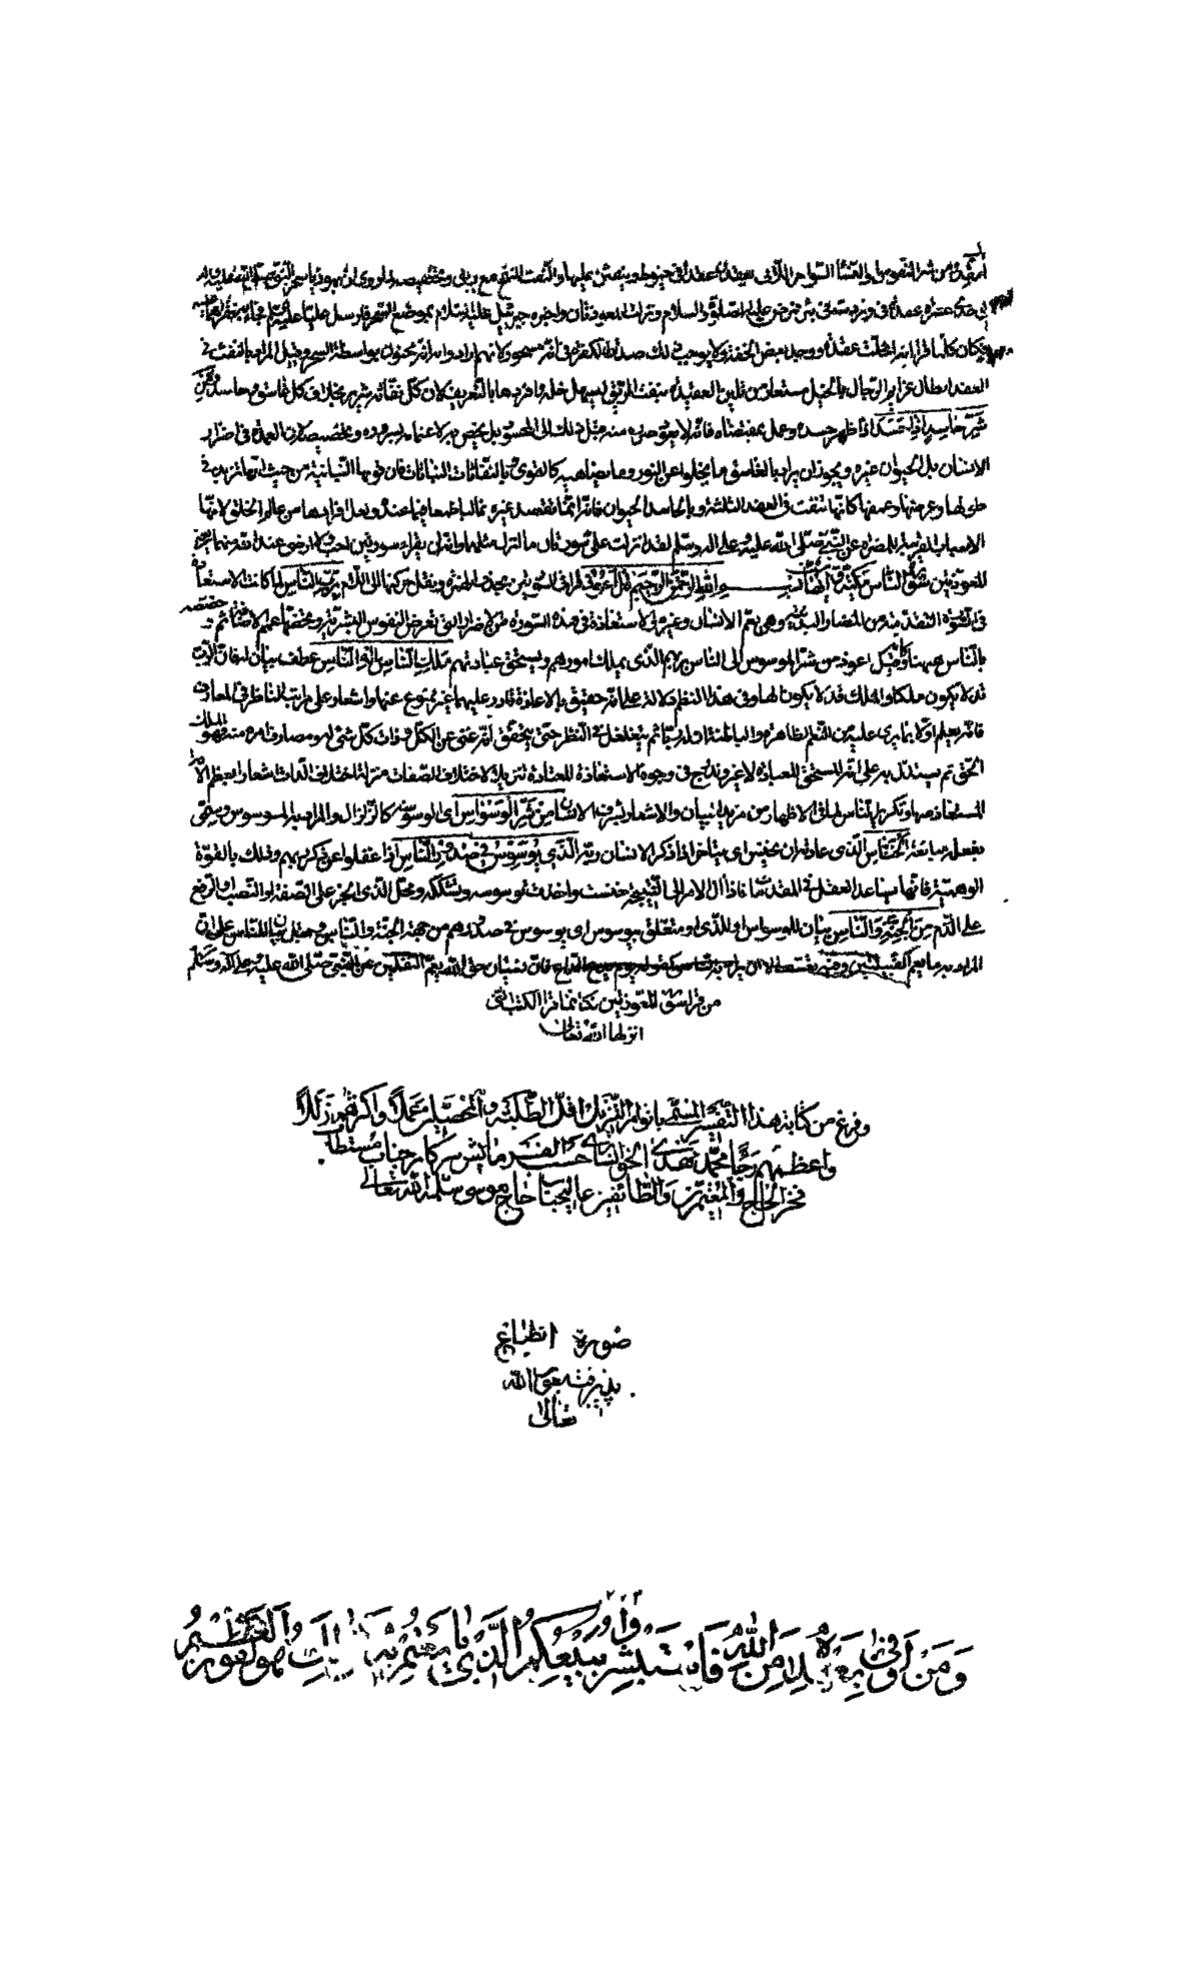 ومن شر النفوس او النساء السواحر اللاتي يعقدن عقدا في خيوط وينفثن عليها والنفث النفخ مع ريق وتخصيصه لما روى ان يهوديا سحر النبي صلى الله عليه وآله
في احدى عشرة عقدة في وتر دسه في بئر فمرض عليه الصلوة والسلام ونزلت المعوذتان واخبره جبرئيل عليه السلام بموضع السحر فارسل عليا عليه السلام فجاء به فقرأهما عليه
فكان كلما قرأ آية انحلت عقدة ووجد بعض الخفة ولا يوجب ذلك صدق الكفرة في انه مسحور لانهم ارادوا به انه مجنون بواسطة السحر وقيل المراد بالنفث في
العقد ابطال عزائم الرجال بالحيل مستعار من تليين العقدة بنفث الريق ليسهل حلها وافرادها بالتعريف لان كل نفاثة شريرة بخلاف كل غاسق وحاسد ومن
شر حاسد اذا حسد اذا اظهر حسده وعمل بمقتضاه فانه لا يعود ضرره منه قبل ذلك الى المحسود بل يخص به لاغتمامه بسروره وتخصيصه لانه العمدة في اضرار
الانسان بل الحيوان غيره ويجوز ان يراد بالغاسق ما يخلو عن النور وما يضاهيه كالقوى وبالنفاثات النباتات فان قواها النباتية من حيث انها تزيد في
طولها وعرضها وعمقها كانها تنفث في العقد الثلثة وبالحاسد الحيوان فانه انما يقصد غيره غالبا طمعا فيما عنده ولعل افرادها من عالم الخلق لانها
الاسباب القريبة للمضرة عن النبي صلى الله عليه وآله وسلم لقد انزلت على سورتان ما انزل مثلهما وانك لن تقرأ سورتين احب ولا ارضى عند الله منهما يعني
المعوذتين سورة الناس مكية وآيها ست بسم الله الرحمن الرحيم قل اعوذ وقرئ في السورتين بحذف الهمزة ونقل حركتها الى اللام برب الناس لما كانت الاستعاذة
في السورة المتقدمة من المضار البدنية وهي تعم الانسان وغيره والاستعاذة في هذه السورة من الاضرار التي تعرض للنفوس البشرية وتخصها عمم الاضافة ثم وخصصه
بالناس ههنا وكانه قيل اعوذ من شر الموسوس الى الناس بربهم الذي يملك امورهم ويستحق عبادتهم ملك الناس اله الناس عطف بيان له فان الرب
قد لا يكون ملكا والملك قد لا يكون الها وفي هذا النظم دلالة على انه حقيق بالاعاذة قادر عليها غير ممنوع عنها واشعار على مراتب الناظر في المعارف
فانه يعلم اولا بما يرى عليه من النعم الظاهرة والباطنة ان له ربا ثم يتغلغل في النظر حتى يتحقق انه غني عن الكل وذات كل شيء له ومصارف امره منه فهو الملك
الحق ثم يستدل به على انه المستحق للعبادة لا غير وتدرج في وجوه الاستعاذة المعتادة تنزيلا لاختلاف الصفات منزلة اختلاف الذات اشعارا بعظم الآفة
المستعاذ منها وتكرير الناس لما في الاظهار من مزيد البيان والاشعار بشرف الانسان من شر الوسواس اى الوسوسة كالزلزال والمراد به الموسوس وسمي
بفعله مبالغة الخناس الذي عادته ان يخنس اى يتأخر اذا ذكر الانسان ربه الذي يوسوس في صدور الناس اذا غفلوا عن ذكر ربهم وذلك بالقوة
الوهمية فانها تساعد العقل في المقدمات فاذا آل الامر الى النتيجة خنست واخذت توسوسه وتشككه ومحل الذي الجر على الصفة او النصب او الرفع
على الذم من الجنة والناس بيان للوسواس او للذي او متعلق بيوسوس اى يوسوس في صدورهم من جهة الجنة والناس وقيل بيان للناس على ان
المراد به ما يعم القبيلتين وفيه تعسف الا ان يراد به الناسي كقوله يوم يدع الداع فان نسيان حق الله يعم الثقلين عن النبي صلى الله عليه وآله وسلم
من قرأ سورة المعوذتين فكانما قرأ الكتب التي
انزلها الله تعالى
وفرغ من كتابة هذا التفسير المسمى بانوار التنزيل اقل الطلبة والمحصلين عملا واكثرهم زللا
واعظمهم رجاء محمد مهدى الخوانساري حسب الفرمايش سركار جناب مستطاب
فخر الحاج والمعتمرين والطائفين عاليجناب حاج موسى سلمه الله تعالى
صورة انطباع
پذيرفت بعون الله
تعالى
ومن اوفى بعهده من الله فاستبشروا ببيعكم الذي بايعتم به وذلك هو الفوز العظيم